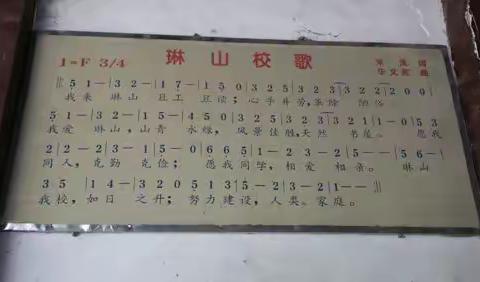 琳山校歌
1=F 3/4
词
曲
5 1—|3 2—|1 7—|1 5 0|3 2 5|3 2 3|3 2 3|3 2 2|2 0 0|
我来 琳山 且工 且读；心手并劳，革除 陋俗
5 1—|3 2—|1 5—|4 5 0|3 2 5|3 2 3|3 2 3|2 1|1—0|5 3
我爱 琳山，山青 水绿，风景佳胜，天然 书屋。 愿我
2|2—2|3—1|5—0|6 6 5|1—2|3—2|5——|5 6—|
同人，克勤 克俭； 愿我同学，相爱 相亲。 琳山
3 5 |1 4—|3 2 0 5 1 3|5—2|3—2|1——||
我校，如日 之升；努力建设，人类。家庭。